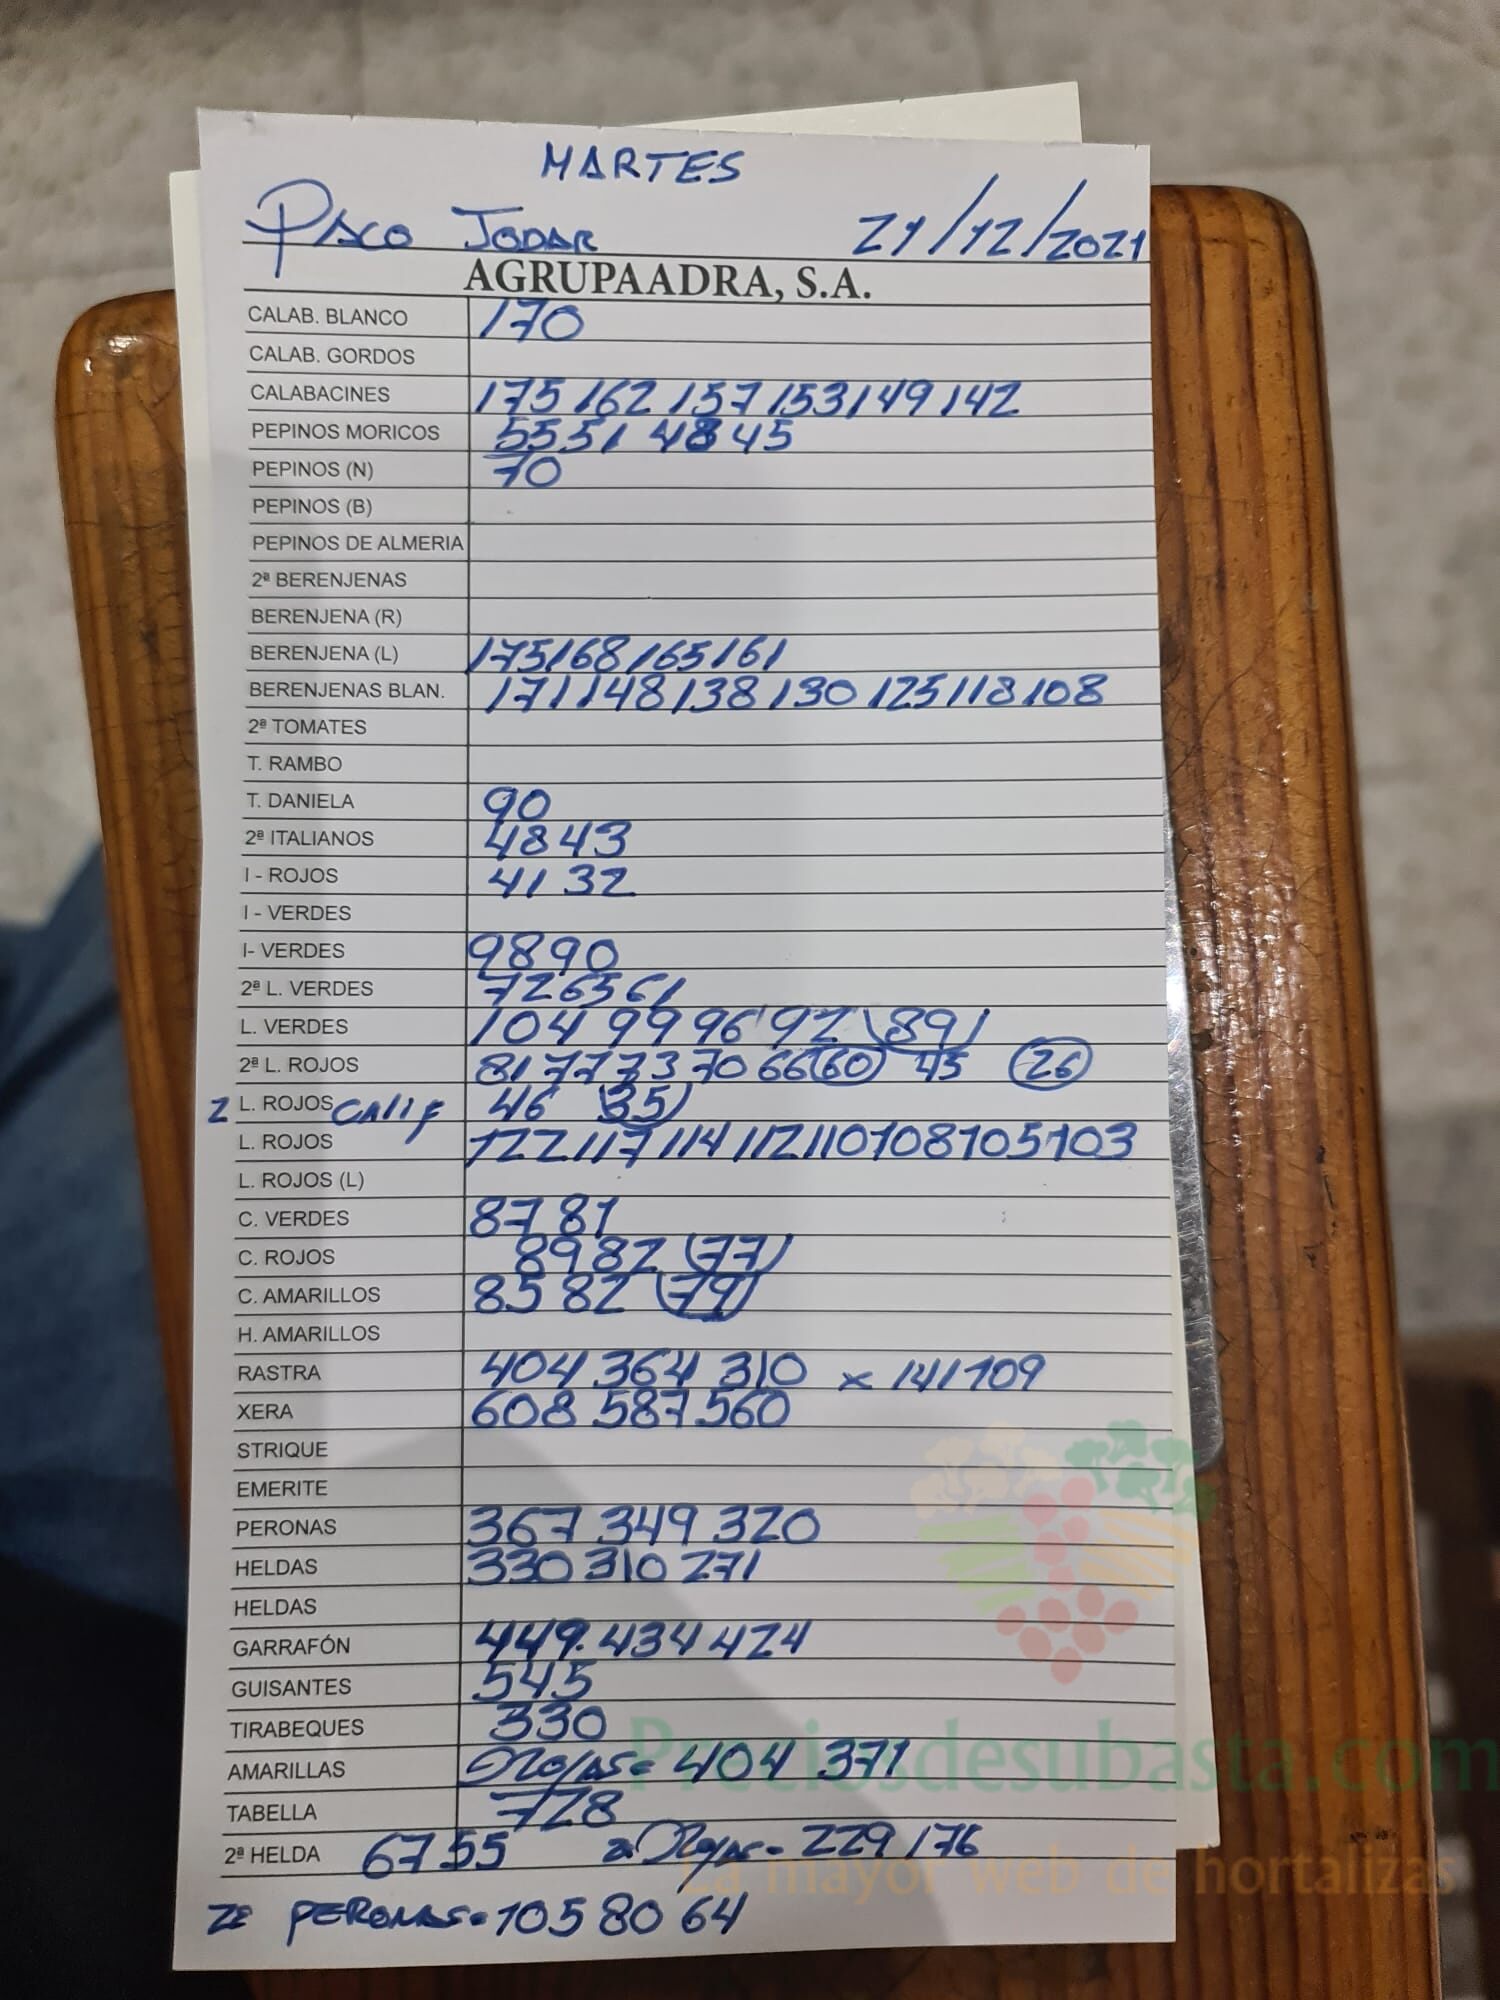 MARTES
PACO JODAR 21/12/2021
AGRUPAADRA, S.A.
CALAB. BLANCO 170
CALAB. GORDOS
CALABACINES 175 162 157 153 149 142
PEPINOS MORICOS 55 51 48 45
PEPINOS (N) 70
PEPINOS (B)
PEPINOS DE ALMERIA
2ª BERENJENAS
BERENJENA (R)
BERENJENA (L) 175 168 165 161
BERENJENAS BLAN. 171 148 138 130 125 118 108
2ª TOMATES
T. RAMBO
T. DANIELA 90
2ª ITALIANOS 48 43
I - ROJOS 41 32
I - VERDES
I- VERDES 98 90
2ª L. VERDES 72 65 61
L. VERDES 104 99 96 92 (89)
2ª L. ROJOS 81 77 73 70 66 (60) 45 (26)
2 L. ROJOS CALIF 46 (35)
L. ROJOS 122 117 114 112 110 108 105 103
L. ROJOS (L)
C. VERDES 87 81
C. ROJOS 89 82 (77)
C. AMARILLOS 85 82 (79)
H. AMARILLOS
RASTRA 404 364 310 x 141 109
XERA 608 587 560
STRIQUE
EMERITE
PERONAS 367 349 320
HELDAS 330 310 271
HELDAS
GARRAFÓN 449. 434 424
GUISANTES 545
TIRABEQUES 330
AMARILLAS Rojas= 404 371
TABELLA 728
2ª HELDA 67 55 2ª Rojas= 229 176
2ª PERONAS= 105 80 64
Preciosdesubasta.com
La mayor web de hortalizas